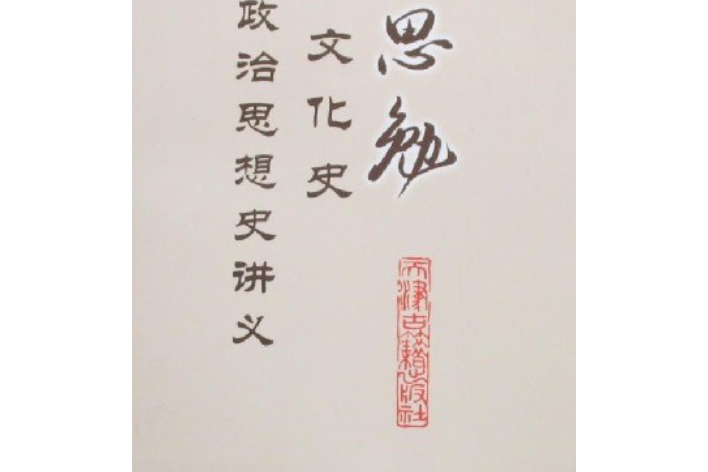 思勉
文化史
政治思想史讲义
天津古籍出版社